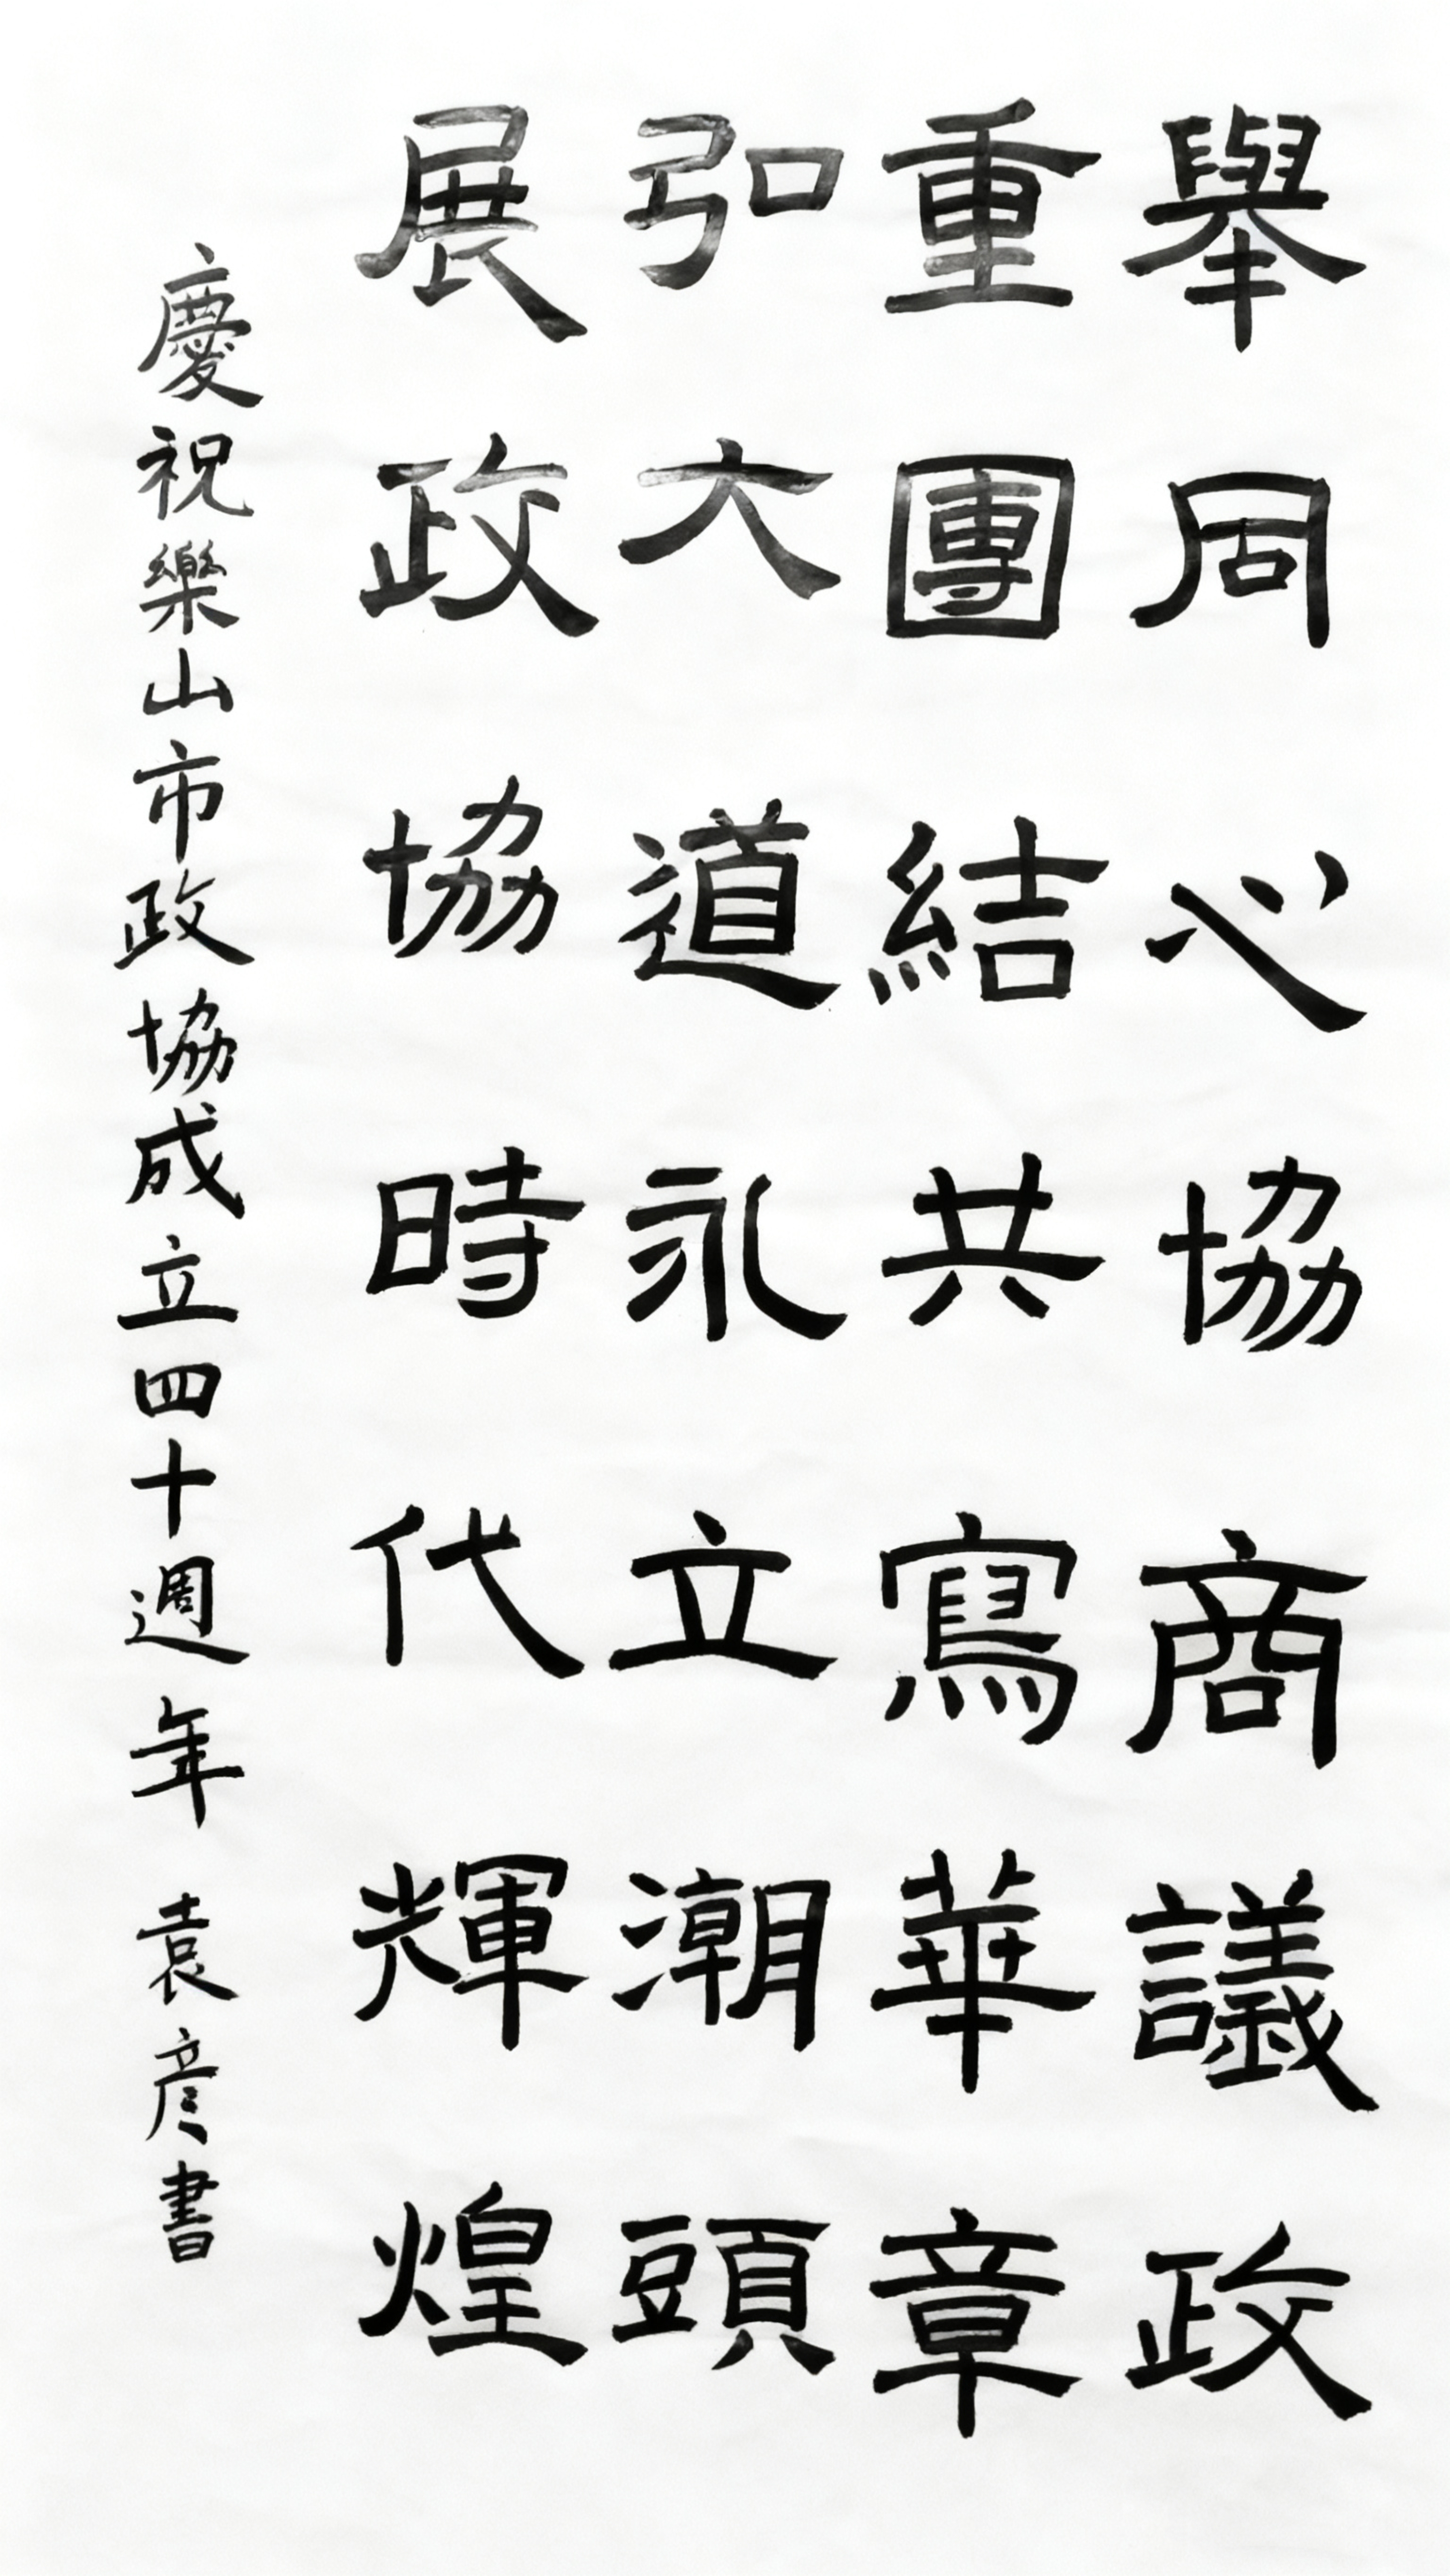 舉同心協商議政
重團結共寫華章
弘大道永立潮頭
展政協時代輝煌
慶祝樂山市政協成立四十週年 袁彦書